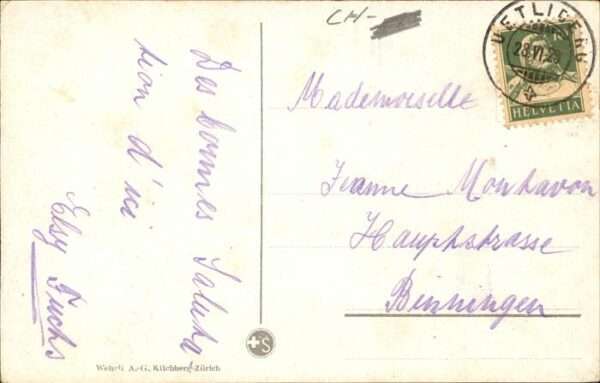 CH-
UETLIBERG
28.VI.25
HELVETIA
Des bonnes Saluta
tion d'ici
Elsy Fuchs
Mademoiselle
Jeanne Montavon
Hauptstrasse
Binningen
S
Wehrli A.-G., Kilchberg-Zürich